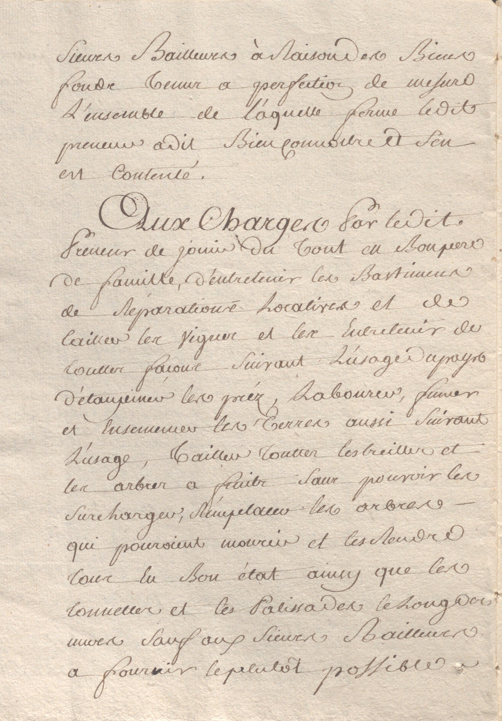 Sieurs Bailleurs à Raison des Biens
fonds tenur a perfection de mesure
L'ensemble de Laquelle ferme ledit
preneur a dit Bien connoitre et S'en
est Contenté.
Aux Charges Par ledit
Preneur de jouir du tout en Bon pere
de famille, d'entretenir les Bastimens
de Réparations Locatives et de
tailler les Vignes et les Entretenir de
touttes façons Suivant L'usage du pays
les préz, Labourer, fumer
et Ensemencer les Terres aussi Suivant
L'usage, Tailler touttes les treilles et
les arbres a fruits Sans pouvoir les
Surcharger, Remplacer les arbres
qui pouroient mourir et les Rendre
tous En Bon état ainsy que les
tonnelles et les Palissades le Long des
murs Sauf aux Sieurs Bailleurs
a fournir le plutot possible